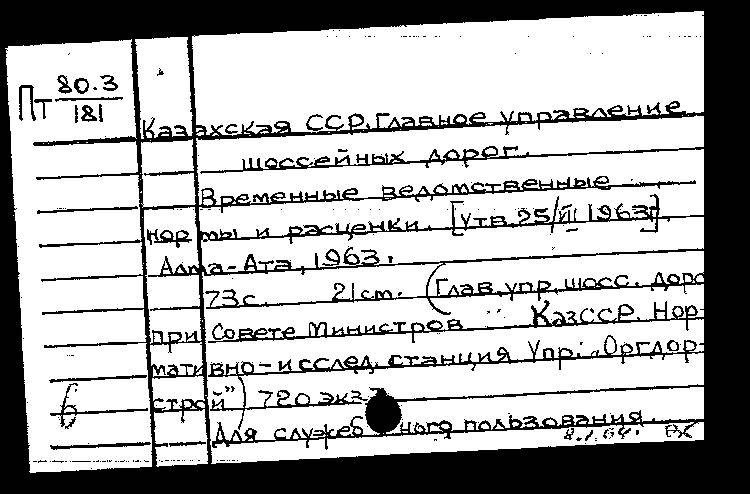 Пт 80.3
181
Казахская ССР. Главное управление
шоссейных дорог.
Временные ведомственные
нормы и расценки. [Утв. 25/VII 1963].
Алма-Ата, 1963.
73с. 21cm. (Глав. упр. шосс. доро
при Совете Министров КазССР. Нор-
мативно-исслед. станция Упр. "Оргдор-
строй") 720 экз.
Для служебного пользования.
6